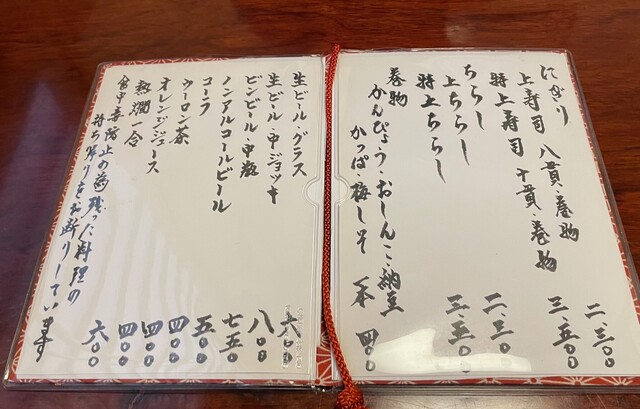 にぎり
上寿司 八貫・巻物 二、三〇〇
特上寿司 十貫・巻物 三、五〇〇
ちらし
上ちらし 二、三〇〇
特上ちらし 三、五〇〇
巻物
かんぴょう・おしんこ・納豆
かっぱ・梅しそ 一本 四〇〇
生ビール・グラス 六〇〇
生ビール・中ジョッキ 八〇〇
ビンビール・中瓶 七五〇
ノンアルコールビール 五〇〇
コーラ 四〇〇
ウーロン茶 四〇〇
オレンジジュース 四〇〇
熱燗一合 六〇〇
食中毒防止の為残った料理の
持ち帰りをお断りしています